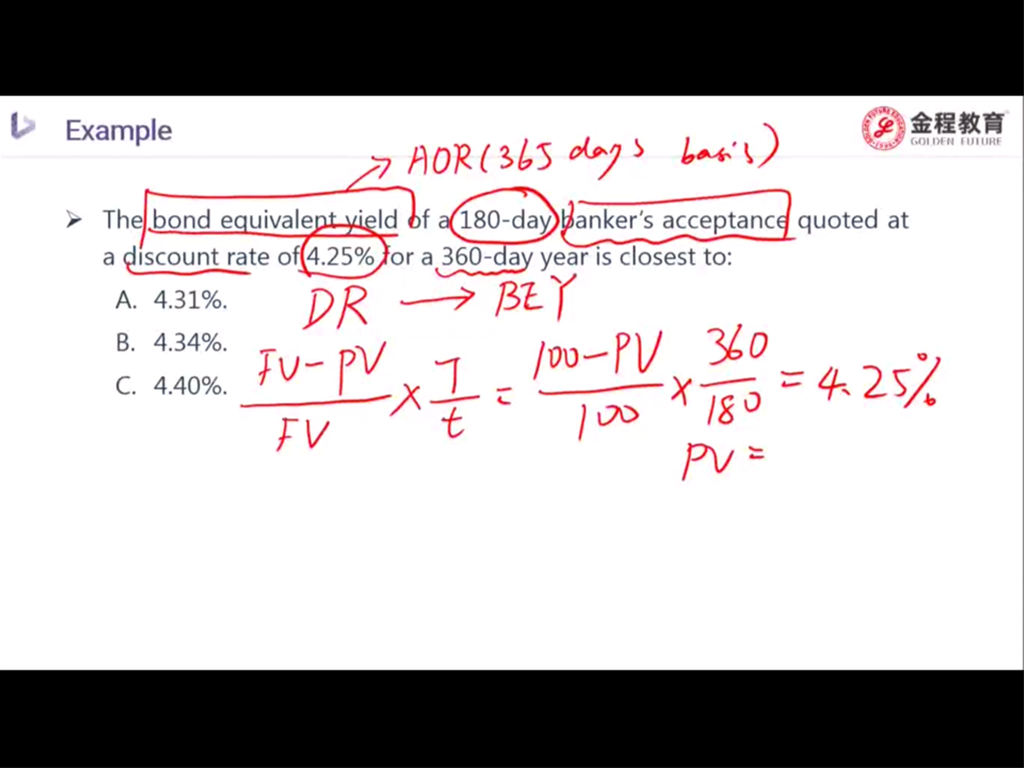 Example
金程教育
GOLDEN FUTURE
AOR (365 days basis)
The bond equivalent yield of a 180-day banker's acceptance quoted at
a discount rate of 4.25% for a 360-day year is closest to:
A. 4.31%.
B. 4.34%.
C. 4.40%.
DR → BEY
FV-PV / FV × T / t = 100-PV / 100 × 360 / 180 = 4.25%
PV =